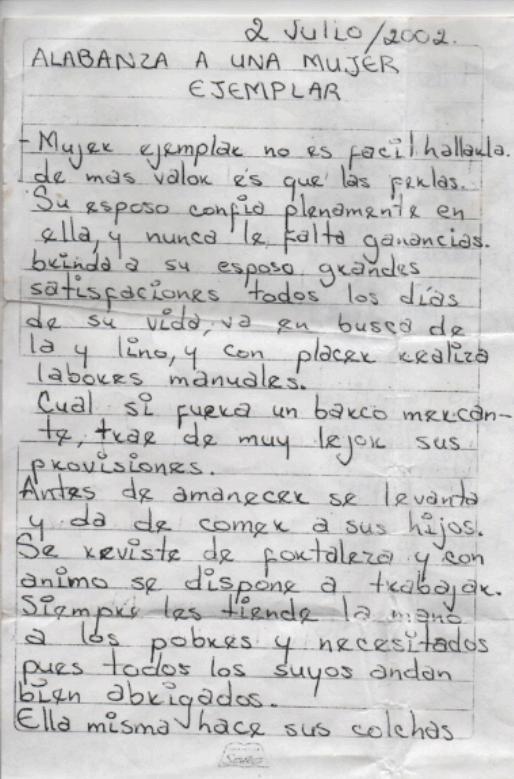 2 Julio/2002.
ALABANZA A UNA MUJER
EJEMPLAR
- Mujer ejemplar no es facil hallarla.
de mas valor es que las perlas.
Su esposo confia plenamente en
ella, y nunca le falta ganancias.
brinda a su esposo grandes
satisfaciones todos los días
de su vida, va en busca de
la y lino, y con placer realiza
labores manuales.
Cual si fuera un barco mercan-
te, trae de muy lejor sus
provisiones.
Antes de amanecer se levanta
y da de comer a sus hijos.
Se reviste de fortaleza y con
animo se dispone a trabajar.
Siempre les tiende la mano
a los pobres y necesitados
pues todos los suyos andan
bien abrigados.
Ella misma hace sus colchas
Scribe